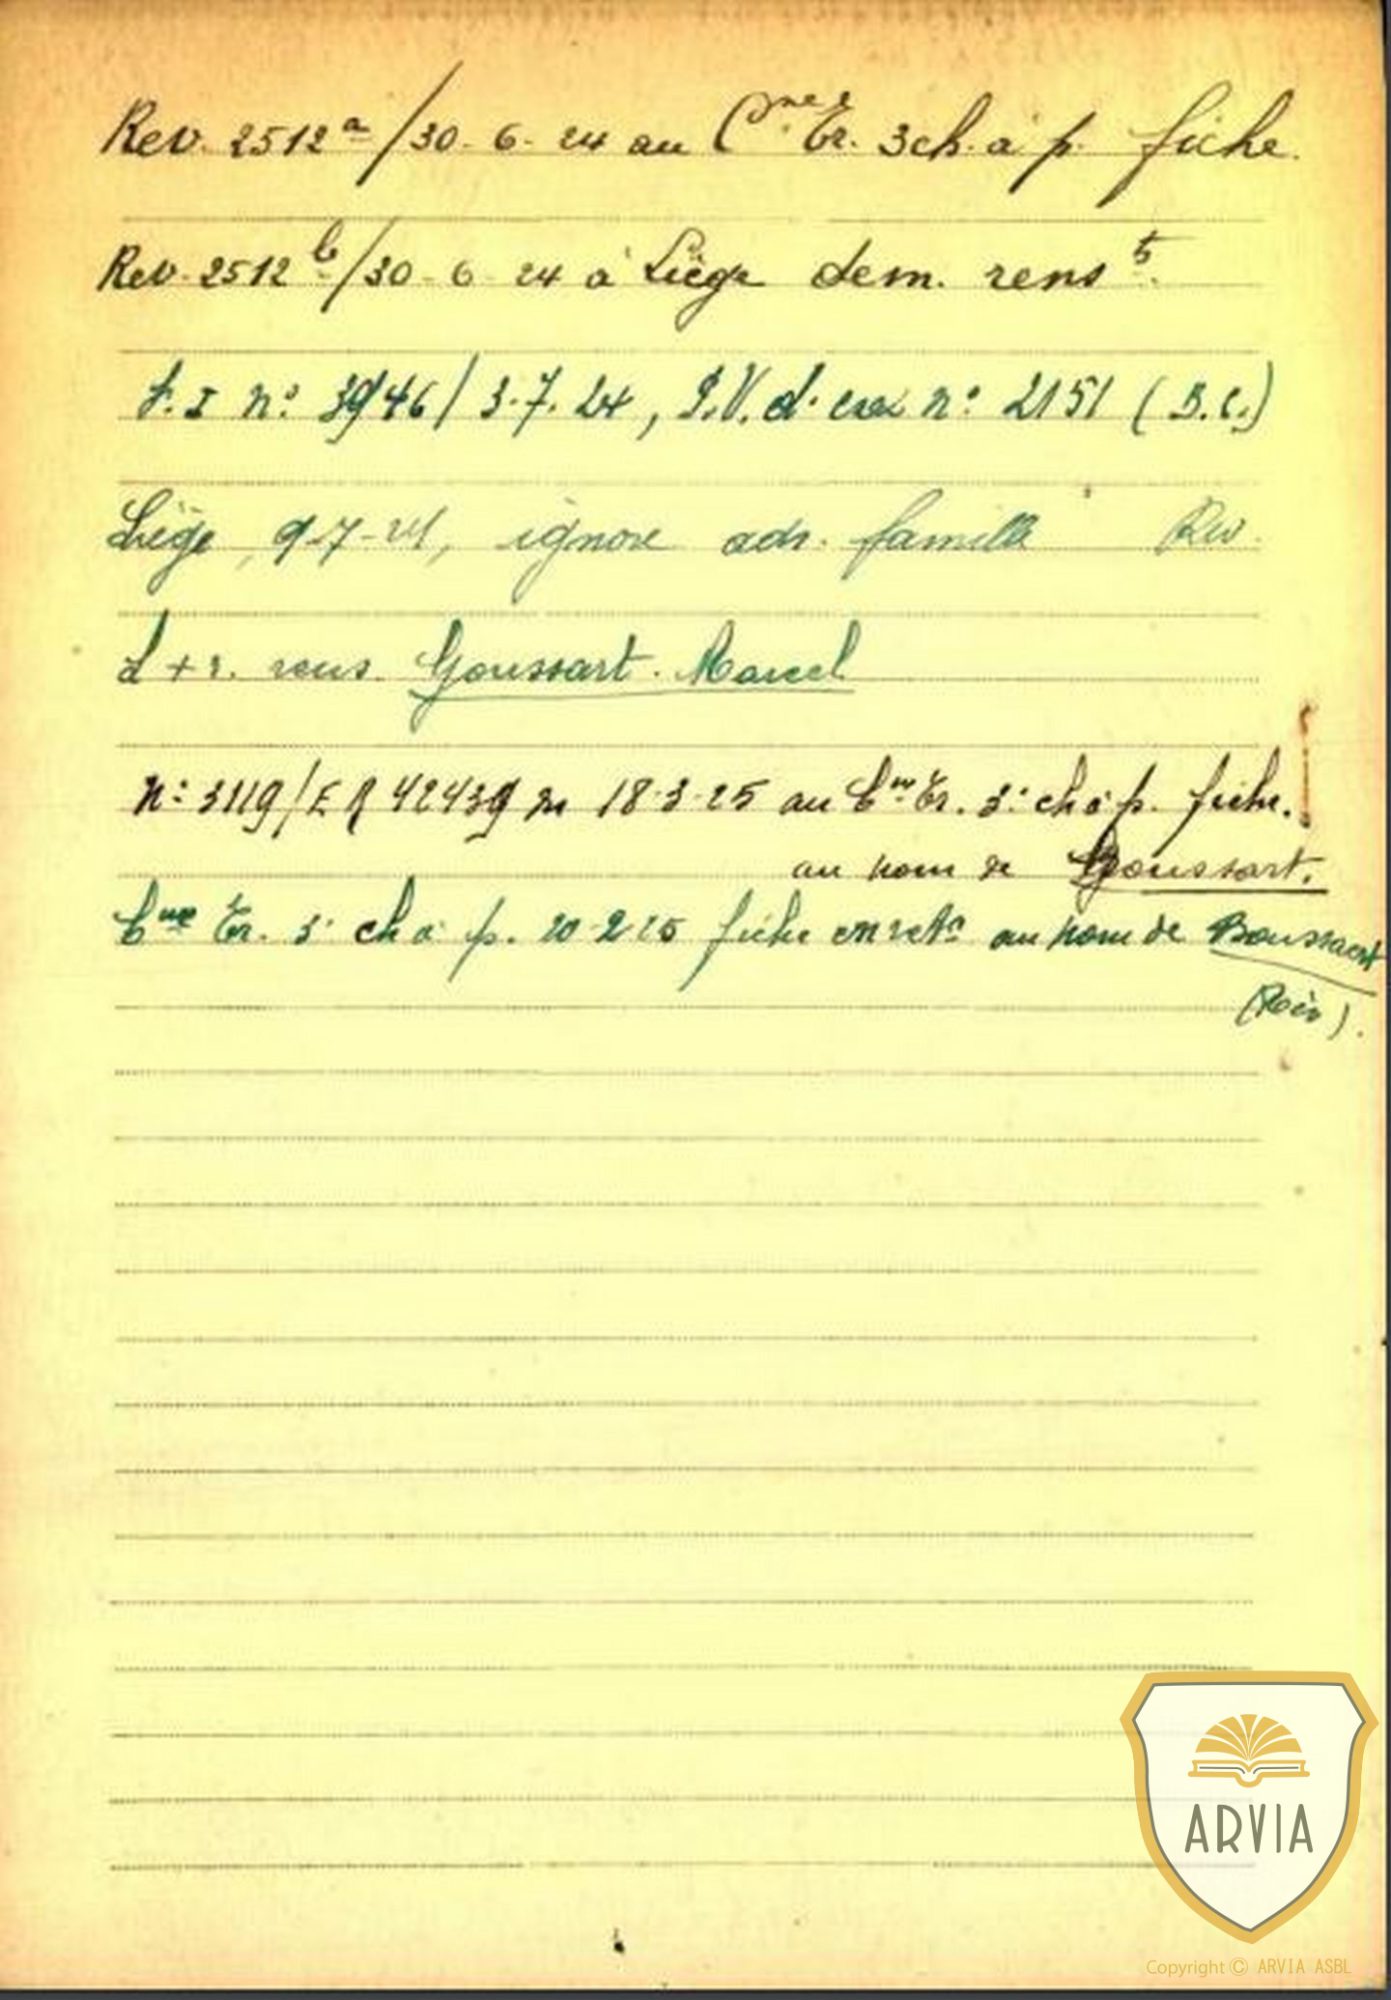 Rev. 2512a / 30-6-24 au Cne Tr. 3 ch. à p. fiche.
Rev. 2512b / 30-6-24 à Liège dem. renst.
F. I n° 3946 / 3.7.24, P.V. d' n° 2151 (B.C.)
Liège, 9-7-24, ignore adr. famille Rev.
d + r. rens. Goussart. Marcel
n° 3119 / E R 42439 18.3.25 au Cne Tr. 3e ch à p. fiche.
au nom de Goussart.
Cne Tr. 3e ch à p. 20-2-25 fiche au nom de Boussaert
(Rév).
ARVIA
Copyright © ARVIA ASBL